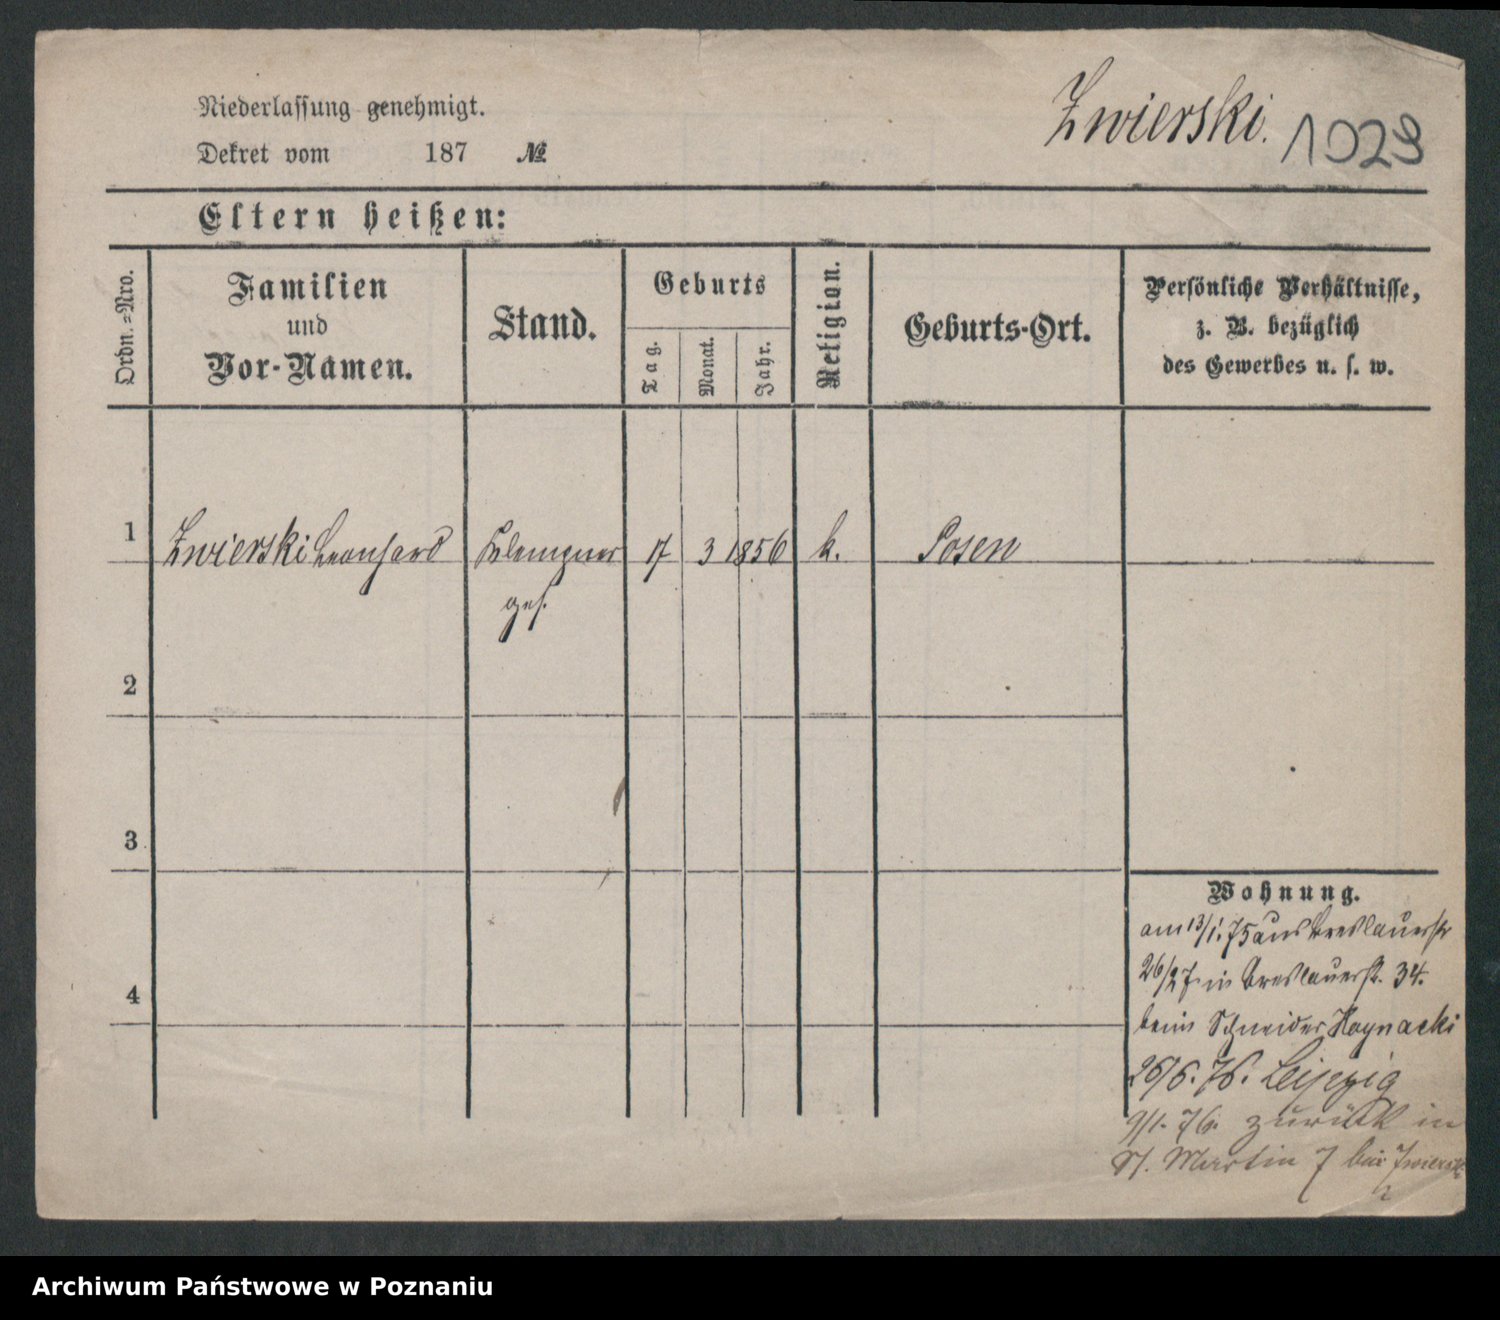 Niederlassung genehmigt.
Zwierski. 1029
Dekret vom 187 №
Eltern heißen:
Ordn.=Nro.
Familien
und
Vor-Namen.
Stand.
Geburts
Tag.
Monat.
Jahr.
Religion.
Geburts-Ort.
Persönliche Verhältnisse,
z. B. bezüglich
des Gewerbes u. s. w.
1 Zwierski Leonhard Klempner 17 3 1856 k. Posen
ges.
2
3
4
Wohnung.
am 13/1. 75 aus Breslauerstr
26/27 in Breslauerstr. 34.
beim Schneider Haynacki
26/6. 76. Leipzig
9/1. 76. zurück in
St. Martin 7 bei Zwierski
Archiwum Państwowe w Poznaniu